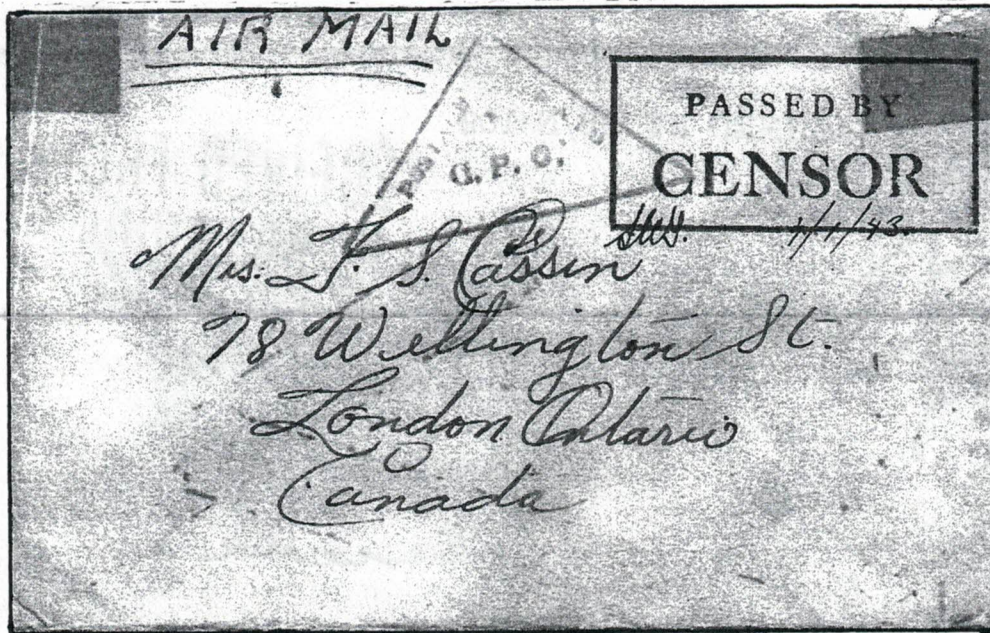 AIR MAIL
POSTAGE PAID
G.P.O.
PASSED BY
CENSOR
1/1/43.
Mrs. F. S. Cassin
78 Wellington St.
London Ontario
Canada